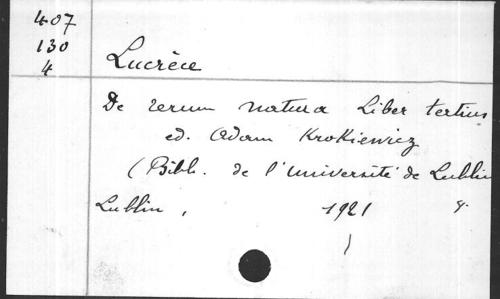 407
130
4
Lucrèce
De rerum natura Liber tertius
ed. Adam Krokiewicz
(Bibl. de l'Université de Lublin
Lublin, 1921 8.